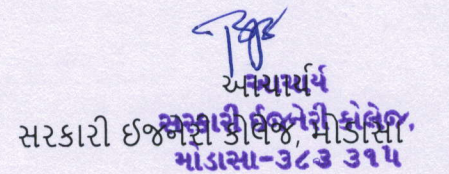 આચાર્ય
આચાર્ય
સરકારી ઈજનેરી કોલેજ, મોડાસા
સરકારી ઈજનેરી કોલેજ,
મોડાસા-૩૮૩ ૩૧૫